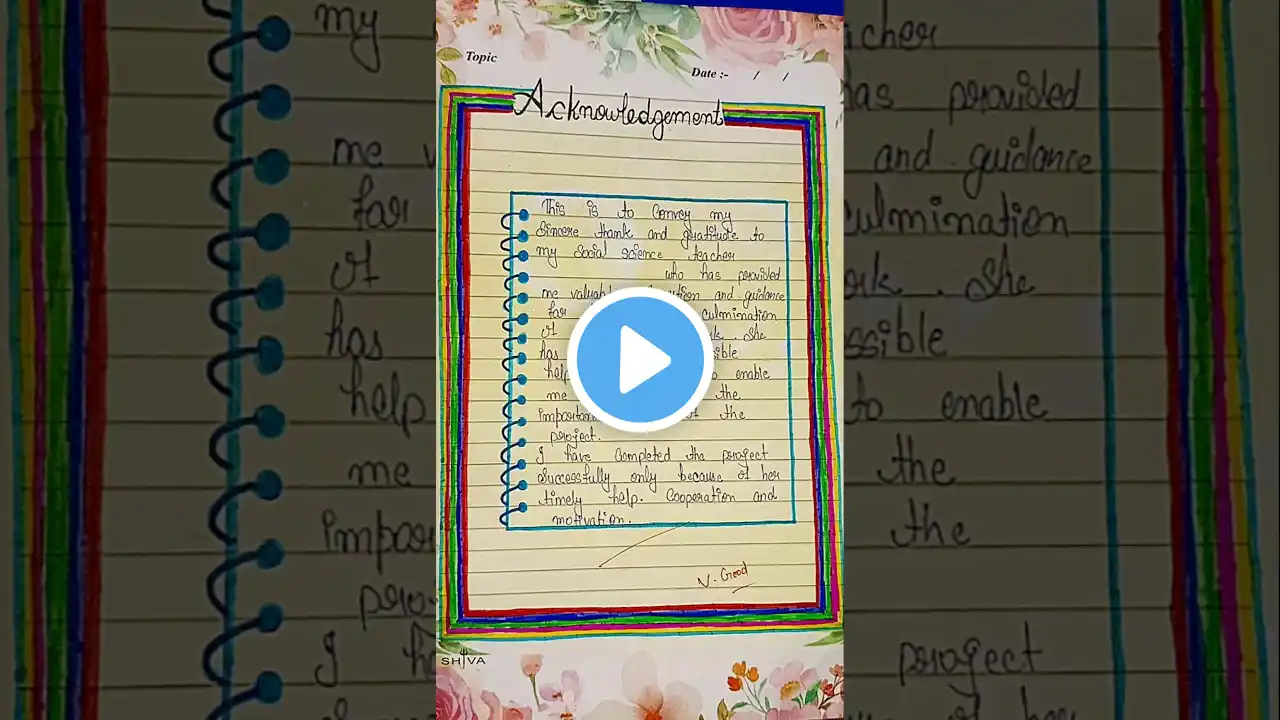 Topic
Date :- / /
Acknowledgement
This is to Convey my
Sincere thank and gratitude to
my Social science teacher
who has provided
me and guidance
for culmination
of She
has
help to enable
me the
of the
project.
I have Completed the project
Successfully only because of her
timely help. Cooperation and
motivation.
V. Good
SHIVA